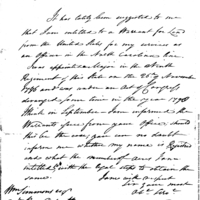 It has lately been suggested to me
that I am entitled to a Warrant for Land
from the United States for my services as
an Officer in the North Carolina Line
I was appointed a Major in the Ninth
Regiment of this State on the 26th of November
1776 and was under an Act of Congress
deranged some time in the year 1778
I think in September I am informed the
Warrants issue from your Office should
this be the case you can no doubt
inform me whether my name is Registered
and what the number of acres I am
intitled to with the steps to obtain
the same
I am with respect
Sir your most
Obt Servt
Wm Simmons esq